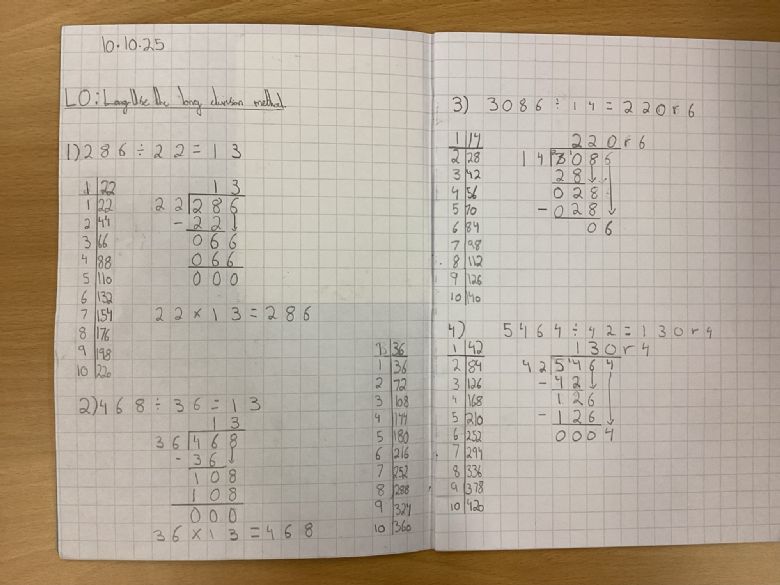 10.10.25
LO: Use the long division method.
1) 286 ÷ 22 = 13
1 22
1 22
2 44
3 66
4 88
5 110
6 132
7 154
8 176
9 198
10 220
13
22 286
- 22
066
066
000
22 × 13 = 286
2) 468 ÷ 36 = 13
13
36 468
- 36
108
108
000
36 × 13 = 468
36
1 36
2 72
3 108
4 144
5 180
6 216
7 252
8 288
9 324
10 360
3) 3086 ÷ 14 = 220 r 6
1 14
2 28
3 42
4 56
5 70
6 84
7 98
8 112
9 126
10 140
220 r 6
14 3086
28
028
- 028
06
4) 5464 ÷ 42 = 130 r 4
1 42
2 84
3 126
4 168
5 210
6 252
7 294
8 336
9 378
10 420
130 r 4
42 5464
- 42
126
- 126
0004